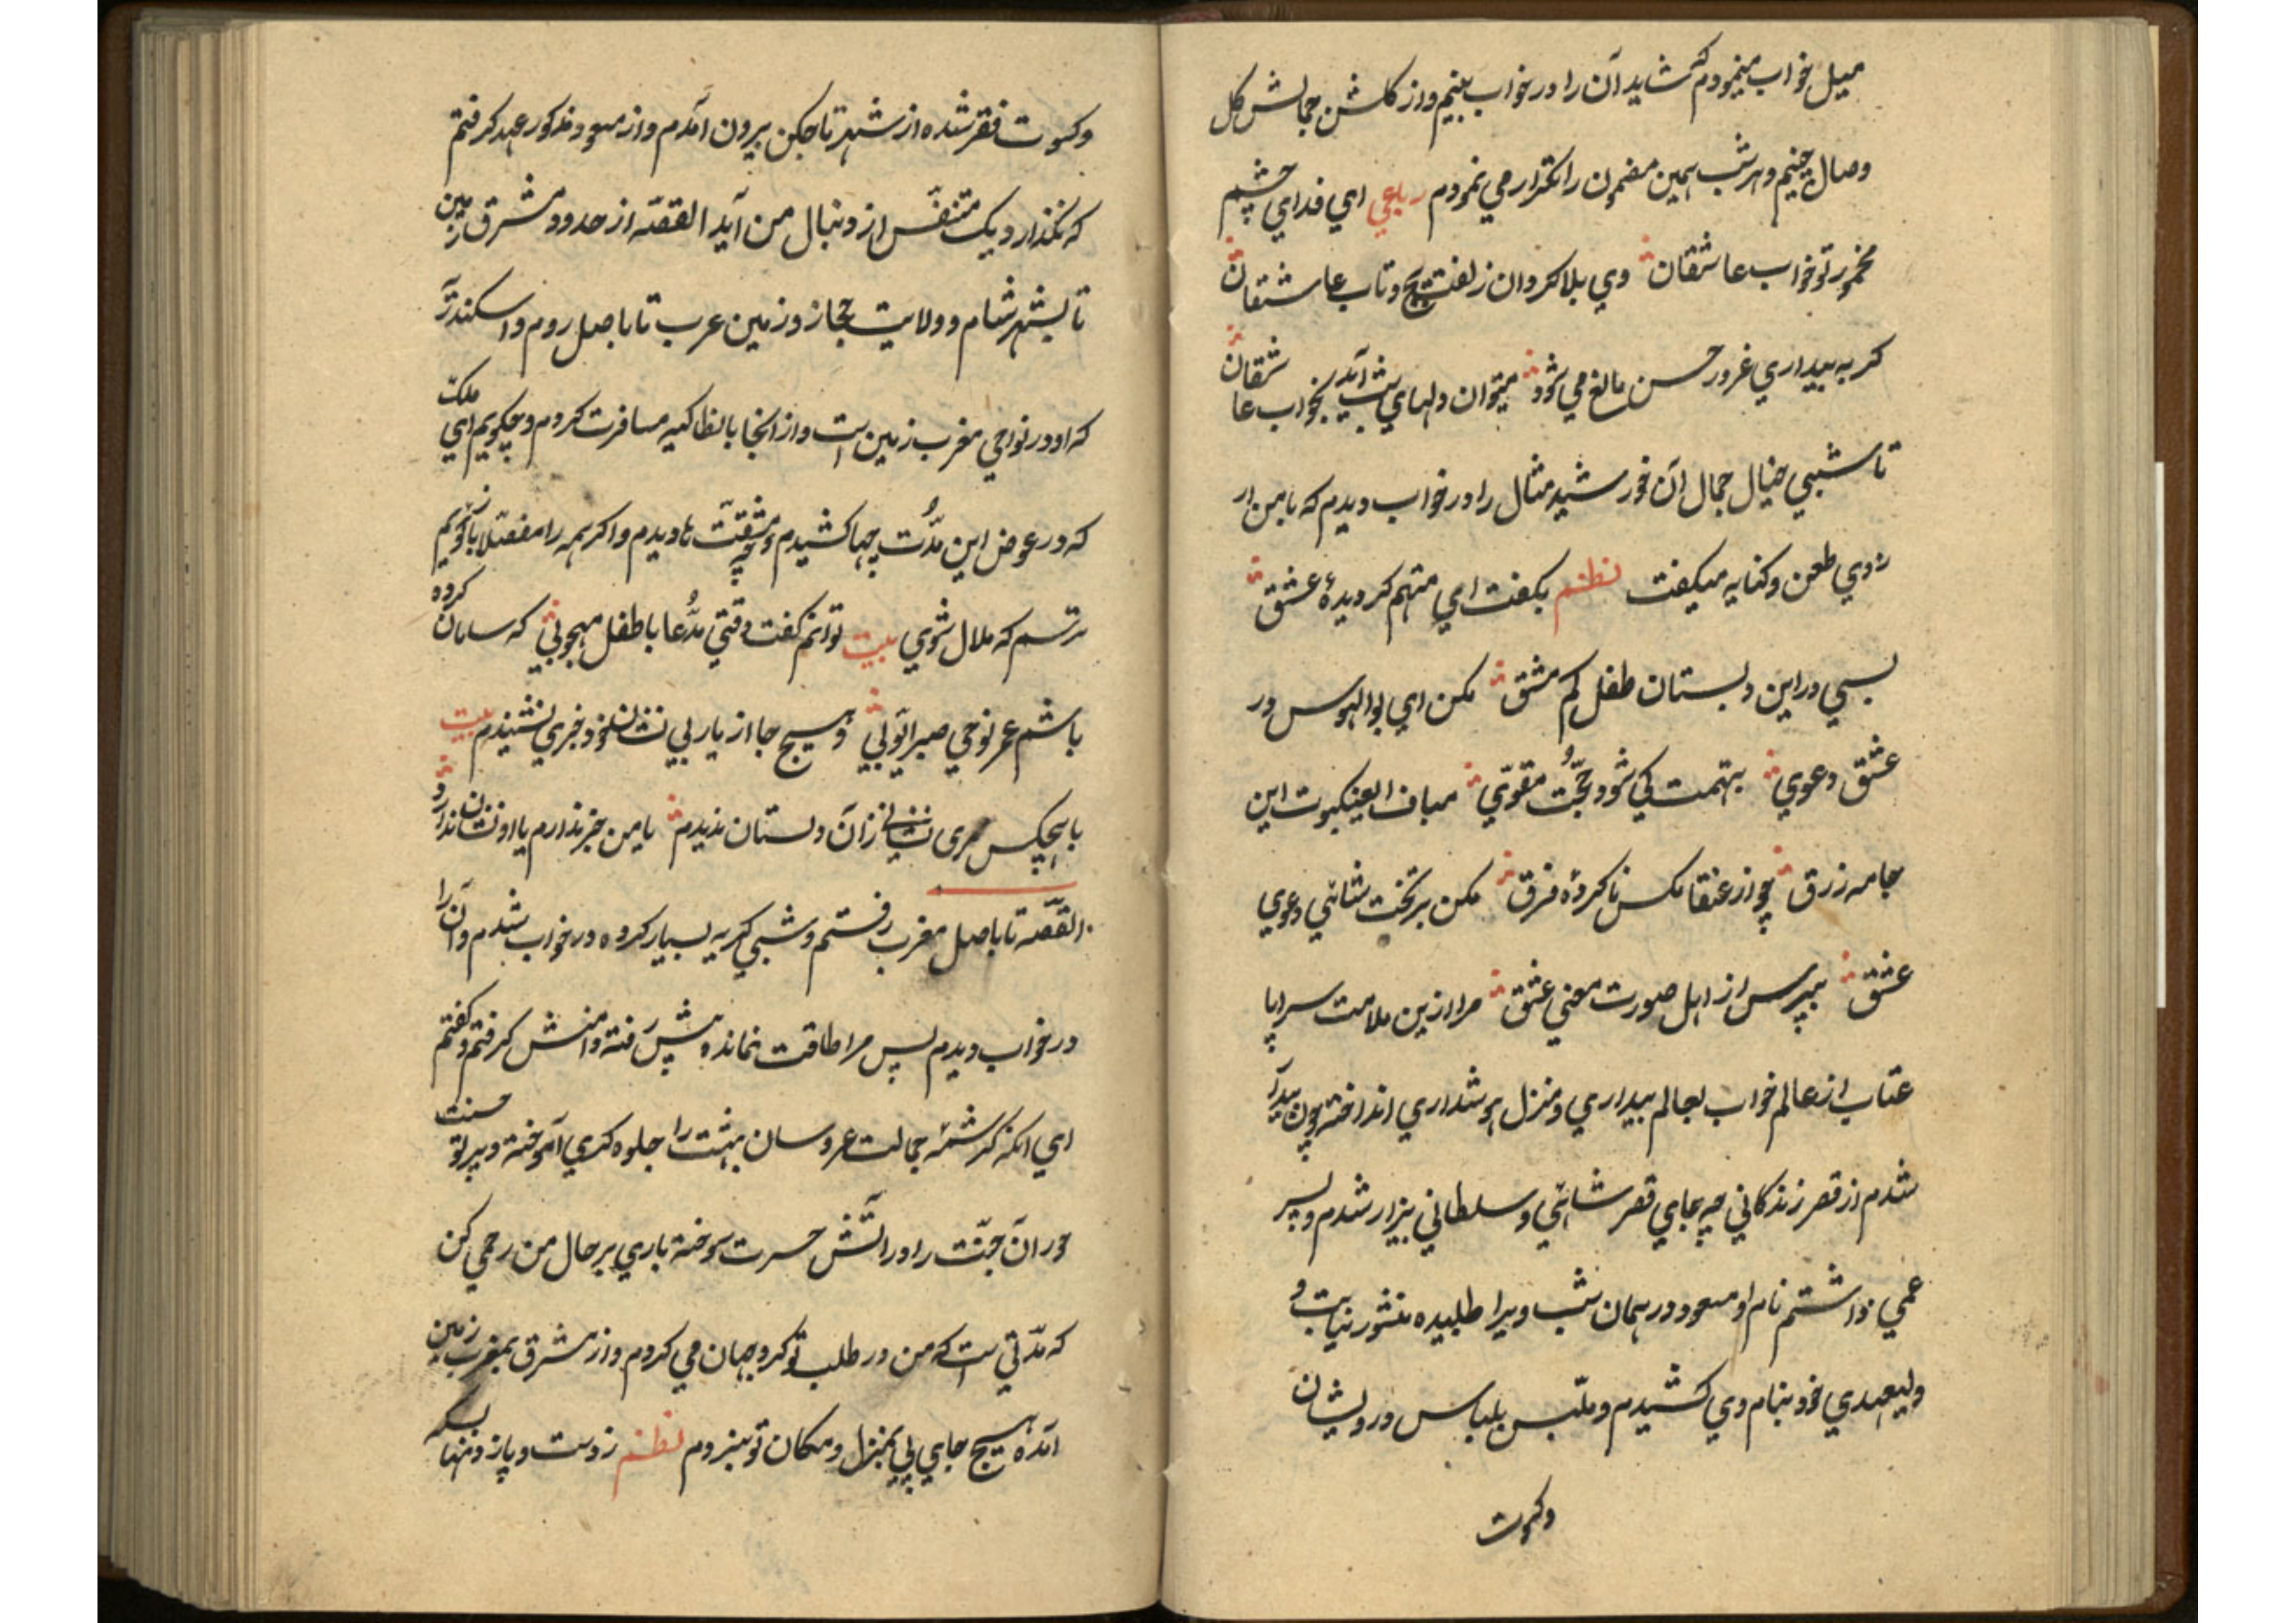 میل خواب مینمودم که شاید آن را در خواب بینم و از کلشن جمالش کل
وصال چینم و هر شب همین مضمون را تکرار می نمودم رباعی ای فدای چشم
مخمور تو خواب عاشقان وی بلا کردان زلفت پیچ و تاب عاشقان
کر به بیداری غرور حسن مانع می شود میتوان دلهای شب آمد بخواب عاشقان
تا شبی خیال جمال آن خورشید مثال را در خواب دیدم که با من از
روی طعن و کنایه میکفت نظم بکفت ای متهم کردیدهٔ عشق
بسی در این دبستان طفل کم مشق مکن ای بوالهوس در
عشق دعوی بتهمت کی شود حجّت مقوّی مباف العنکبوت این
جامه زرق چو از عنقا مکس ناکرده فرق مکن بر تخت شاهی دعوی
عشق مپرس از اهل صورت معنی عشق مرا ازین ملامت سراپا
عتاب از عالم خواب بعالم بیداری و منزل هوشداری انداخته چون بیدار
شدم از قصر زندکانی چه جای قصر شاهی و سلطانی بیزار شدم و پسر
عمی داشتم نام او مسعود در همان شب ویرا طلبیده منشور نیابت و
ولیعهدی خود بنام وی کشیدم و ملبّس بلباس درویشان
وکسوت
وکسوت فقر شده از شهر تاجکن بیرون آمدم و از مسعود مذکور عهد کرفتم
که نکذارد یک متنفّس از دنبال من آید القصّه از حدود مشرق زمین
تا بشهر شام و ولایت حجاز و زمین عرب تا باصل روم و اسکندر
که او در نواحی مغرب زمین است و از انجا بانطاکیه مسافرت کردم و چکویم ای ملک
که در عوض این مدّت چها کشیدم و چه مشقّت ها دیدم و اکر همه را مفصّلا باز کویم
ترسم که ملال شوی بیت توانم کفت وقتی مدّعا با طفل مهجوبی که سامان کرده
باشم عمر نوحی صبر ایّوبی و هیچ جا از یار بی نشان خود خبری نشنیدم بیت
با هیچکس نشانی زان دلستان ندیدم یا من خبر ندارم یا او نشان ندارد
القصّه تا باصل مغرب رفتم و شبی کریه بسیار کرده در خواب شدم و آن را
در خواب دیدم پس مرا طاقت نمانده پیش رفته دامنش کرفتم و کفتم
ای انکه کرشمه جمالت عروسان بهشت را جلوه کری آموخته و پرتو حسنت
حوران جنّت را در آتش حسرت سوخته باری بر حال من رحمی کن
که مدّتی است که من در طلب تو کرد جهان می کردم و از مشرق بمغرب زمین
آمده هیچ جای پی بمنزل و مکان تو نبردم نظم ز دست و پا زدنها بسکه